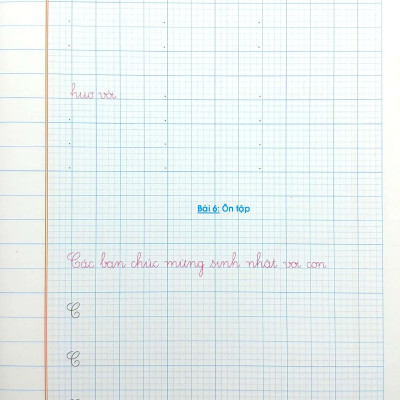 hươu vơi
Bài 6: Ôn tập
Các bạn chúc mừng sinh nhật voi con
C
C